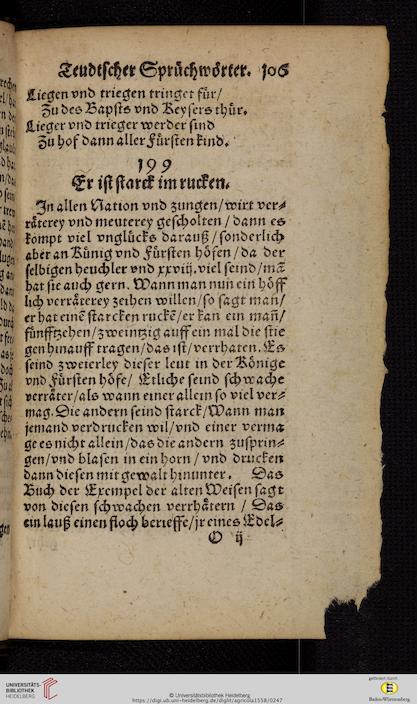 Teudtscher Sprüchwörter. 106
Liegen vnd triegen tringet für/
Zu des Bapsts vnd Keysers thür.
Lieger vnd trieger werder sind
Zu hof dann aller Fürsten kind.
199
Er ist starck im rucken.
In allen Nation vnd zungen/wirt ver=
räterey vnd meuterey gescholten/dann es
kompt viel vnglücks darauß/sonderlich
aber an Künig vnd Fürsten höfen/da der
selbigen heuchler vnd xxviij. viel seind/mā
hat sie auch gern. Wann man nun ein höff
lich verräterey zeihen willen/so sagt man/
er hat einē starcken ruckē/er kan ein mañ/
fünfftzehen/zweintzig auff ein mal die stie
gen hinauff tragen/das ist/verrhaten. Es
seind zweierley dieser leut in der Könige
vnd Fürsten höfe/ Etliche seind schwache
verräter/als wann einer allein so viel ver=
mag. Die andern seind starck/Wann man
jemand verdrucken wil/vnd einer vermag
ge es nicht allein/das die andern zusprin=
gen/vnd blasen in ein horn/vnd drucken
dann diesen mit gewalt hinunter. Das
Buch der Exempel der alten Weisen sagt
von diesen schwachen verrhätern / Das
ein lauß einen floch berieffe/jr eines Edel=
O ij
UNIVERSITÄTS-
BIBLIOTHEK
HEIDELBERG
© Universitätsbibliothek Heidelberg
https://digi.ub.uni-heidelberg.de/diglit/agricola1558/0247
gefördert durch
Baden-Württemberg